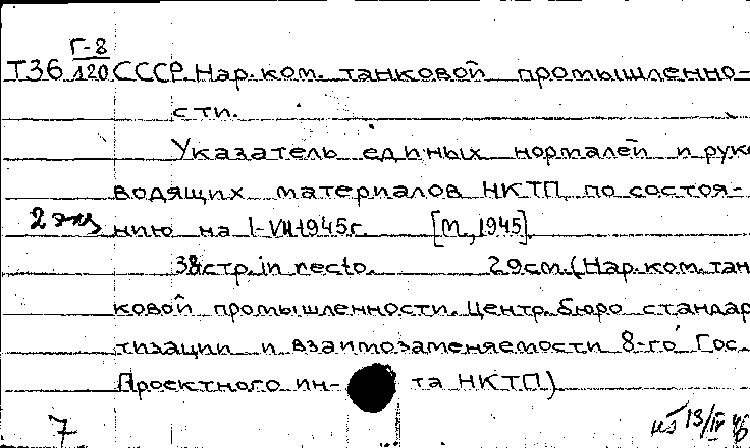 Г-8
Т36 120 СССР. Нар. ком. танковой промышленно-
сти.
Указатель единых нормалей и руко
водящих материалов НКТП по состоя-
2 экз нию на I-VII-1945 г. [М., 1945].
38 стр. in recto. 20 см. (Нар. ком. тан
ковой промышленности. Центр. бюро стандар
тизации и взаимозаменяемости 8-го Гос.
Проектного ин- та НКТП)
7 13/IV